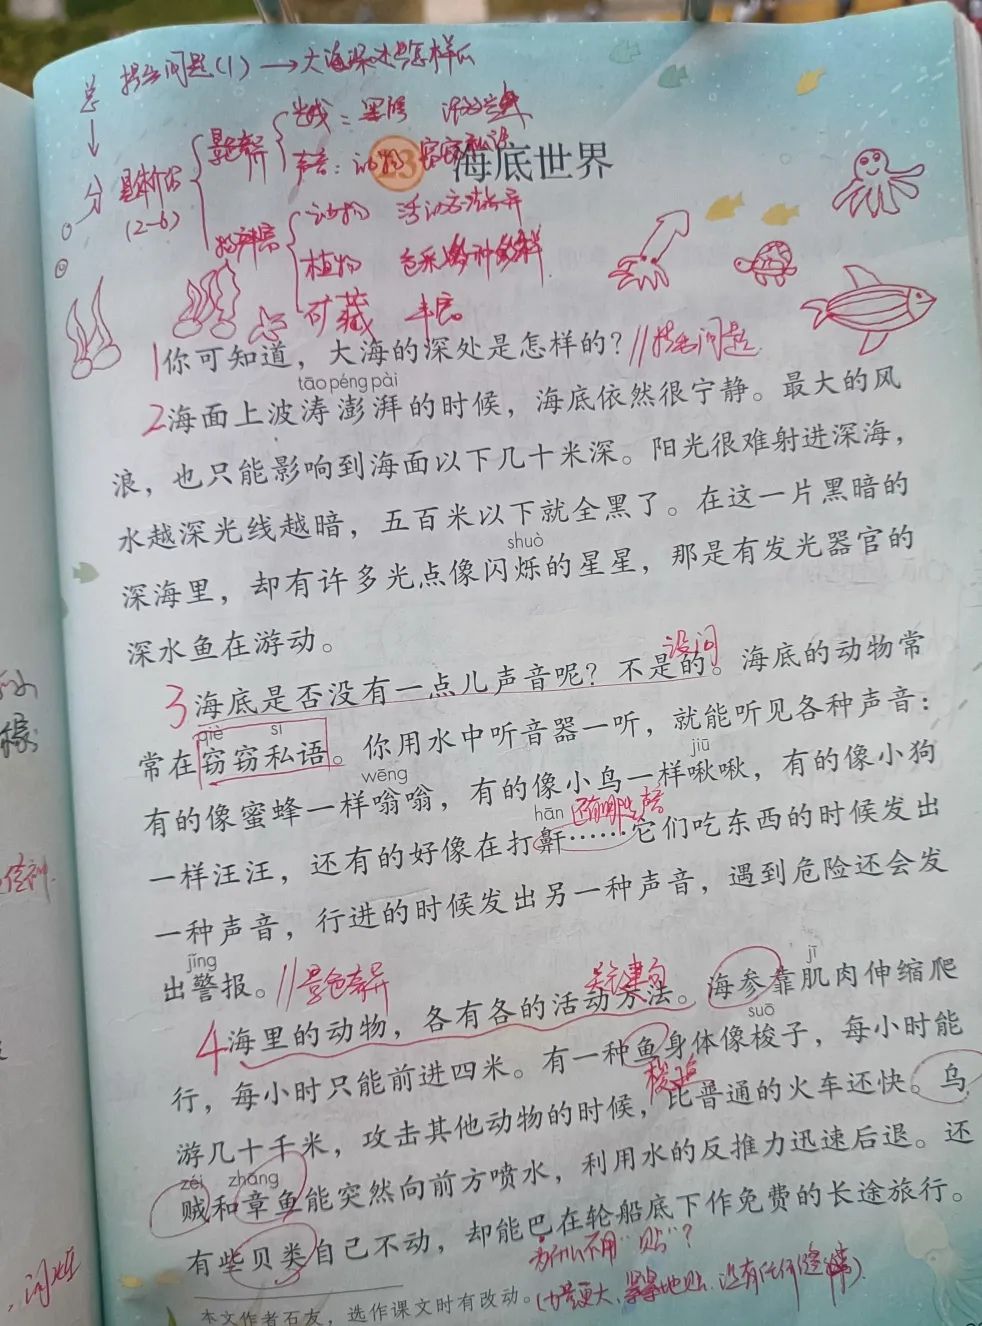 总 提出问题(1)→大海深处是怎样的
光线：黑暗
景色奇异
声音：动物 窃窃私语
分 具体介绍
(2-6)
23 海底世界
动物 活动方法各异
物产丰富
植物 色彩多种多样
矿藏 丰富
1 你可知道，大海的深处是怎样的？//提出问题
tāo péng pài
2 海面上波涛澎湃的时候，海底依然很宁静。最大的风
浪，也只能影响到海面以下几十米深。阳光很难射进深海，
水越深光线越暗，五百米以下就全黑了。在这一片黑暗的
shuò
深海里，却有许多光点像闪烁的星星，那是有发光器官的
深水鱼在游动。
设问
3 海底是否没有一点儿声音呢？不是的。海底的动物常
qiè sī
常在窃窃私语。你用水中听音器一听，就能听见各种声音：
wēng jiū
有的像蜜蜂一样嗡嗡，有的像小鸟一样啾啾，有的像小狗
hān 还有哪些声音
一样汪汪，还有的好像在打鼾……它们吃东西的时候发出
一种声音，行进的时候发出另一种声音，遇到危险还会发
jǐng
出警报。//景色奇异
关键句 jī
4 海里的动物，各有各的活动方法。海参靠肌肉伸缩爬
suō
行，每小时只能前进四米。有一种鱼身体像梭子，每小时能
梭鱼
游几十千米，攻击其他动物的时候，比普通的火车还快。乌
zéi zhāng
贼和章鱼能突然向前方喷水，利用水的反推力迅速后退。还
有些贝类自己不动，却能巴在轮船底下作免费的长途旅行。
为什么不用“贴”？
(力量更大、紧紧地贴、没有任何缝隙)
本文作者石友，选作课文时有改动。